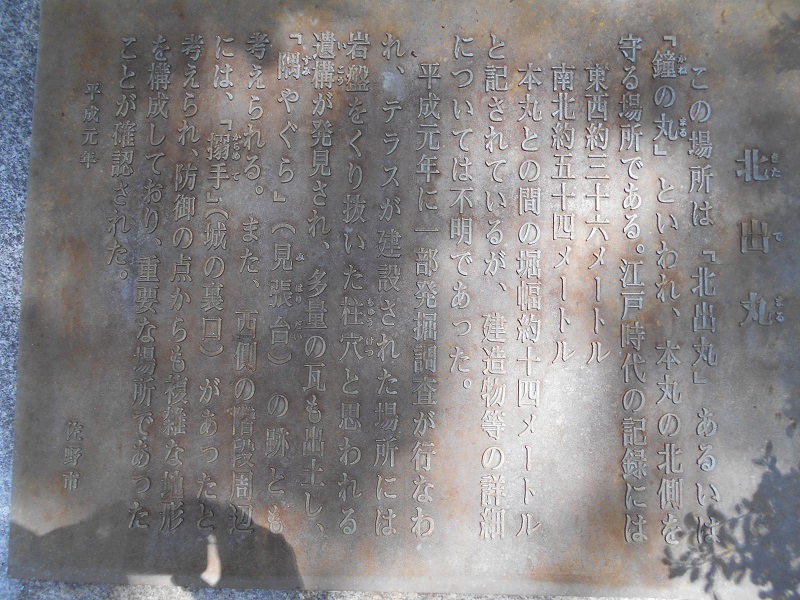 北出丸
きたでまる
この場所は「北出丸」あるいは
『鐘の丸』といわれ、本丸の北側を
かね まる
守る場所である。江戸時代の記録には
東西約三十六メートル
南北約五十四メートル
本丸との間の堀幅約十四メートル
と記されているが、建造物等の詳細
については不明であった。
平成元年に一部発掘調査が行なわ
れ、テラスが建設された場所には
岩盤をくり抜いた柱穴と思われる
ちゅうけつ
遺構が発見され、多量の瓦も出土し、
いこう
『隅やぐら』（見張台）の跡とも
すみ みはりだい
考えられる。また、西側の階段周辺
には、『搦手』（城の裏口）があったと
からめて
考えられ、防御の点からも複雑な地形
を構成しており、重要な場所であった
ことが確認された。
平成元年
佐野市